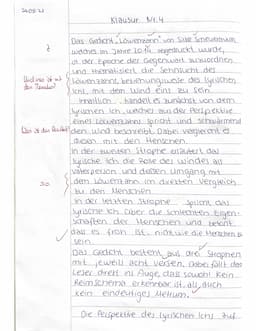 20.05.21
Klausur Nr. 4
Das Gedicht „Löwenzahn“ von Silke Scheuermann,
welches im Jahre 2014 abgedruckt wurde,
ist der Epoche der Gegenwart zuzuordnen
und thematisiert die Sehnsucht des
Löwenzahns, beziehungsweise des lyrischen
Ichs, mit dem Wind eins zu sein.
Inhaltlich handelt es zunächst von dem
lyrischen Ich, welches aus der Perspektive
eines Löwenzahns spricht und schwärmend
den Wind beschreibt. Dabei vergleicht es
diesen mit den Menschen.
In der zweiten Strophe erläutert das
lyrische Ich die Rolle des Windes als
Vaterperson und dessen Umgang mit
dem Löwenzahn im direkten Vergleich
zu den Menschen.
In der letzten Strophe spricht das
lyrische Ich über die schlechten Eigen-
schaften der Menschen und betont,
dass es froh ist, nicht wie die Menschen zu
sein.
Das Gedicht besteht aus drei Strophen
mit jeweils acht Versen. Dabei fällt dem
Leser direkt ins Auge, dass sowohl kein
Reimschema erkennbar ist, als auch
kein eindeutiges Metrum.
Die Perspektive des lyrischen Ichs ruf